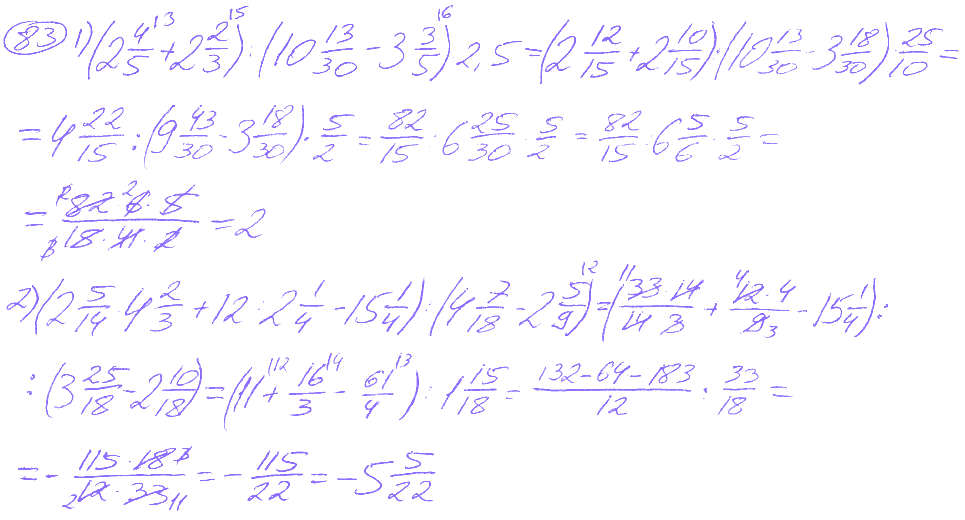 83 1) (2 4/5 + 2 2/3) : (10 13/30 - 3 3/5) 2,5 = (2 12/15 + 2 10/15) : (10 13/30 - 3 18/30) 25/10 =
= 4 22/15 : (9 43/30 - 3 18/30) · 5/2 = 82/15 · 6 25/30 · 5/2 = 82/15 · 6 5/6 · 5/2 =
= 82 · 6 · 5 / 15 · 41 · 2 = 2
2) (2 5/14 · 4 2/3 + 12 : 2 1/4 - 15 1/4) : (4 7/18 - 2 5/9) = (33 · 14 / 14 · 3 + 12 · 4 / 9 - 15 1/4) :
: (3 25/18 - 2 10/18) = (11 + 16/3 - 61/4) : 1 15/18 = 132 - 64 - 183 / 12 : 33/18 =
= - 115 · 18 / 12 · 33 = - 115/22 = - 5 5/22